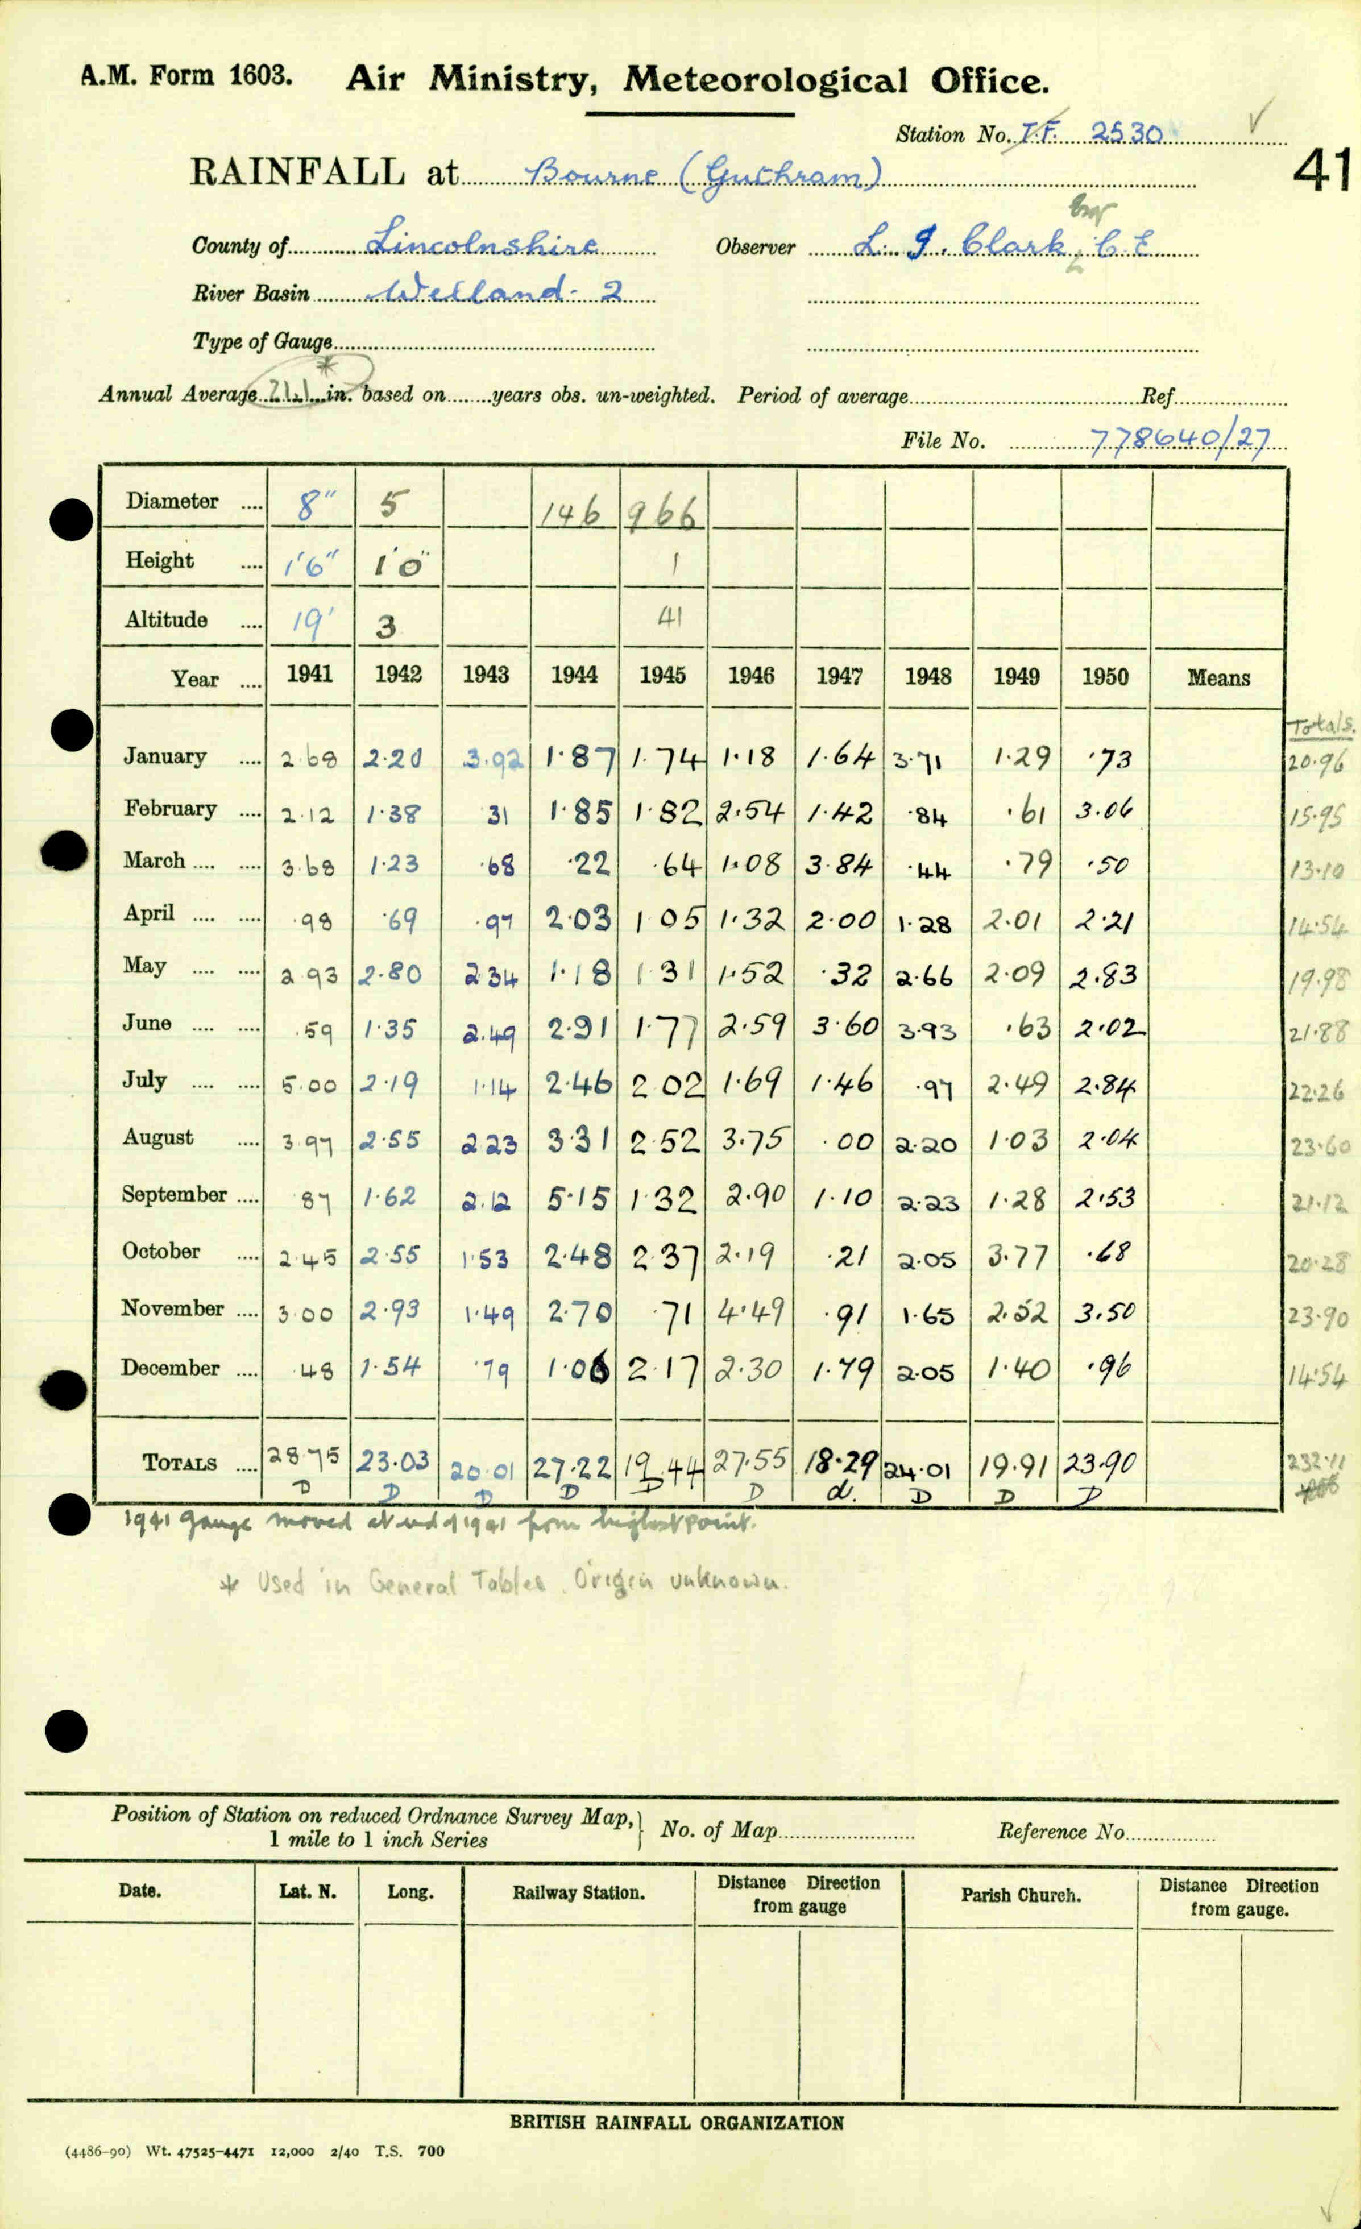 A.M. Form 1603. Air Ministry, Meteorological Office.
Station No. T.F. 2530 ✓
41
RAINFALL at Bourne (Guthram)
County of Lincolnshire Observer L. J. Clark, C.E
River Basin Welland - 2
Type of Gauge
Annual Average in. * based on years obs. un-weighted. Period of average Ref.
File No. 778640/27
Diameter .... 8" 5 146 966
Height .... 1'6" 1'0" 1
Altitude .... 19' 3 41
Year .... 1941 1942 1943 1944 1945 1946 1947 1948 1949 1950 Means
Totals.
January .... 2.68 2.20 3.92 1.87 1.74 1.18 1.64 3.71 1.29 .73 20.96
February .... 2.12 1.38 31 1.85 1.82 2.54 1.42 .84 .61 3.06 15.95
March .... .... 3.68 1.23 .68 .22 .64 1.08 3.84 .44 .79 .50 13.10
April .... .... .98 .69 .97 2.03 1 05 1.32 2.00 1.28 2.01 2.21 14.54
May .... .... 2 93 2.80 2.34 1.18 1 31 1.52 .32 2.66 2.09 2.83 19.98
June .... .... .59 1.35 2.49 2.91 1.77 2.59 3.60 3.93 .63 2.02 21.88
July .... .... 5.00 2.19 1.14 2.46 2 02 1.69 1.46 .97 2.49 2.84 22.26
August .... 3.97 2.55 2.23 3.31 2.52 3.75 .00 2.20 1.03 2.04 23.60
September .... 87 1.62 2.12 5.15 1.32 2.90 1.10 2.23 1.28 2.53 21.12
October .... 2.45 2.55 1.53 2.48 2.37 2.19 .21 2.05 3.77 .68 20.28
November .... 3.00 2.93 1.49 2.70 .71 4.49 .91 1.65 2.52 3.50 23.90
December .... .48 1.54 .79 1.06 2.17 2.30 1.79 2.05 1.40 .96 14.54
TOTALS .... 28.75 23.03 20.01 27.22 19.44 27.55 18.29 24.01 19.91 23.90 232.11
D D D D D D d. D D D
1941 gauge moved at end of 1941 from highest point.
* Used in General Tables. Origin unknown.
Position of Station on reduced Ordnance Survey Map, } No. of Map Reference No.
1 mile to 1 inch Series
Date. Lat. N. Long. Railway Station. Distance Direction from gauge Parish Church. Distance Direction from gauge.
BRITISH RAINFALL ORGANIZATION
(4486-90) Wt. 47525-4471 12,000 2/40 T.S. 700